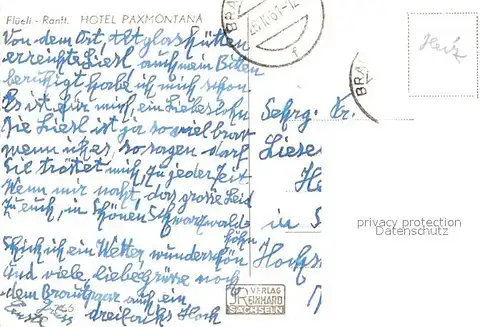 Flüeli - Ranft. HOTEL PAXMONTANA
Von dem Ort, Altglashütten
erreichte Liesl, auch mein Bitten
beruhigt habe ich mich schon
Es ist für mich ein Liebeslohn
Die Liesl ist ja so viel brav
wenn ich es, so sagen darf
Sie tröstet mich, zu jeder Zeit
Wenn mir naht, das grosse Leid
Zu euch, in schönen Schwarzwalde
höhn
Schick ich ein Wetter wunderschön
Und viele liebe Grüsse noch
dem Brautpaar auch ein
dreifaches Hoch
Sehrg. Fr.
Liese
in S
Hochs
privacy protection
Datenschutz
VERLAG
REINHARD
SACHSELN
BRA
BRA